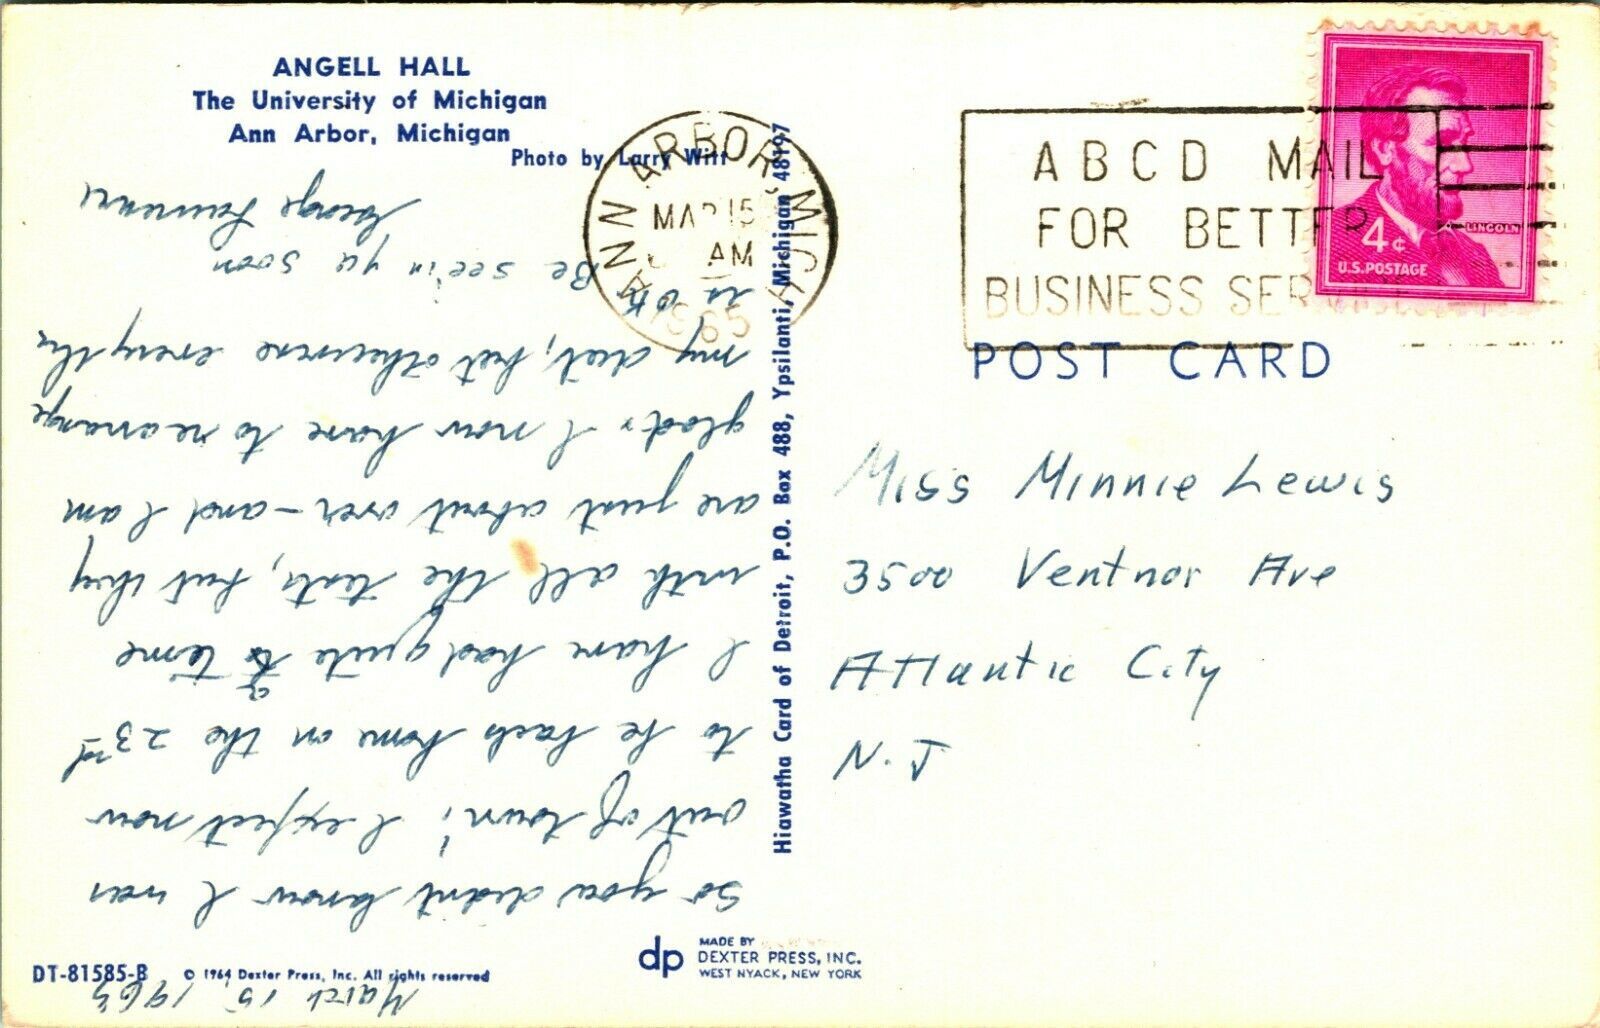 ANGELL HALL
The University of Michigan
Ann Arbor, Michigan
Photo by Larry Witt
ANN ARBOR, MICH
MAR 15
AM
1965
ABCD MAIL
FOR BETTER
BUSINESS SER
4¢
LINCOLN
U.S. POSTAGE
POST CARD
Miss Minnie Lewis
3500 Ventnor Ave
Atlantic City
N.J
Hiawatha Card of Detroit, P.O. Box 488, Ypsilanti, Michigan 48197
March 15, 1965
So you didnt know I was
out of town! I expect now
to be back home on the 23rd
I have had quite a time
with all the tests, but they
are just about over - and I am
glad. I now have to rearrange
my diet, but otherwise everythg
is ok
Be seein ya soon
George
DT-81585-B
© 1964 Dexter Press, Inc. All rights reserved
dp
MADE BY
DEXTER PRESS, INC.
WEST NYACK, NEW YORK